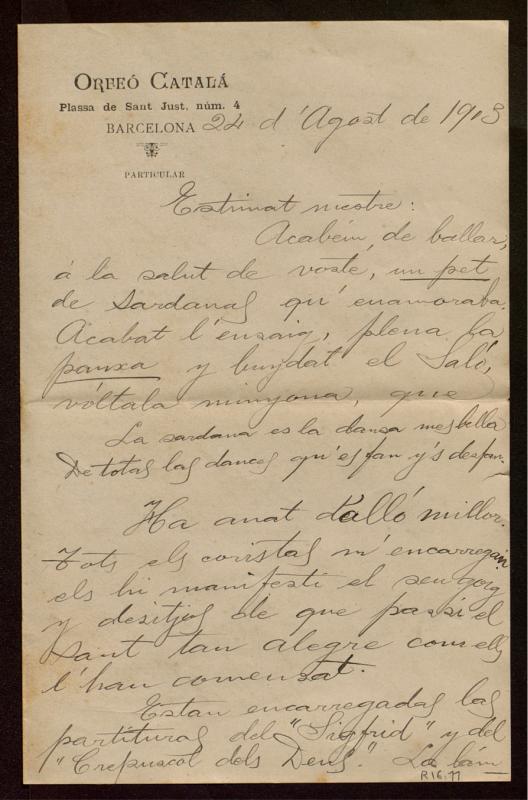 ORFEÓ CATALÁ
Plassa de Sant Just, núm. 4
BARCELONA 24 d'Agost de 1903
PARTICULAR
Estimat mestre:
Acabém de ballar,
á la salut de voste, un pet
de Sardanas qu'enamoraba.
Acabat l'ensaig, plena la
panxa y buydat el Saló,
vóltala minyona, que
La sardana es la dansa mes bella
De totas las dances qu'es fan y's desfan.
Ha anat d'alló millor.
Tots els coristas m'encarregan
els hi manifesti el seu goig
y desitjos de que passi el
Sant tan alegre com ells
l'han comensat.
Estan encarregadas las
partituras del "Sigfrid" y del
"Crepuscol dels Deus". La
R16.77